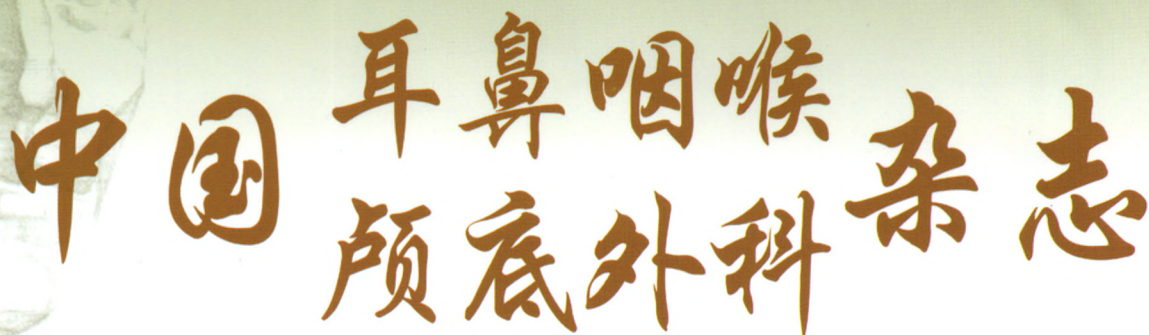 中国耳鼻咽喉颅底外科杂志